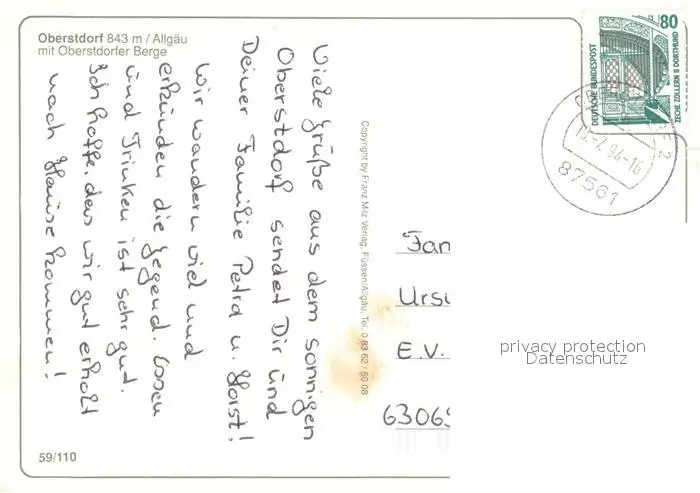 Oberstdorf 843 m / Allgäu
mit Oberstdorfer Berge
Viele Grüße aus dem sonnigen
Oberstdorf sendet Dir und
Deiner Familie Petra u. Horst!
Wir wandern viel und
erkunden die Gegend. Essen
und Trinken ist sehr gut.
Ich hoffe, dass wir gut erholt
nach Hause kommen!
59/110
Copyright by Franz Milz Verlag, Füssen/Allgäu, Tel. 0 83 62 / 50 08
80
DEUTSCHE BUNDESPOST
ZECHE ZOLLERN II DORTMUND
2
94-16
87561
Fam
Ursu
E.V.
63069
privacy protection
Datenschutz